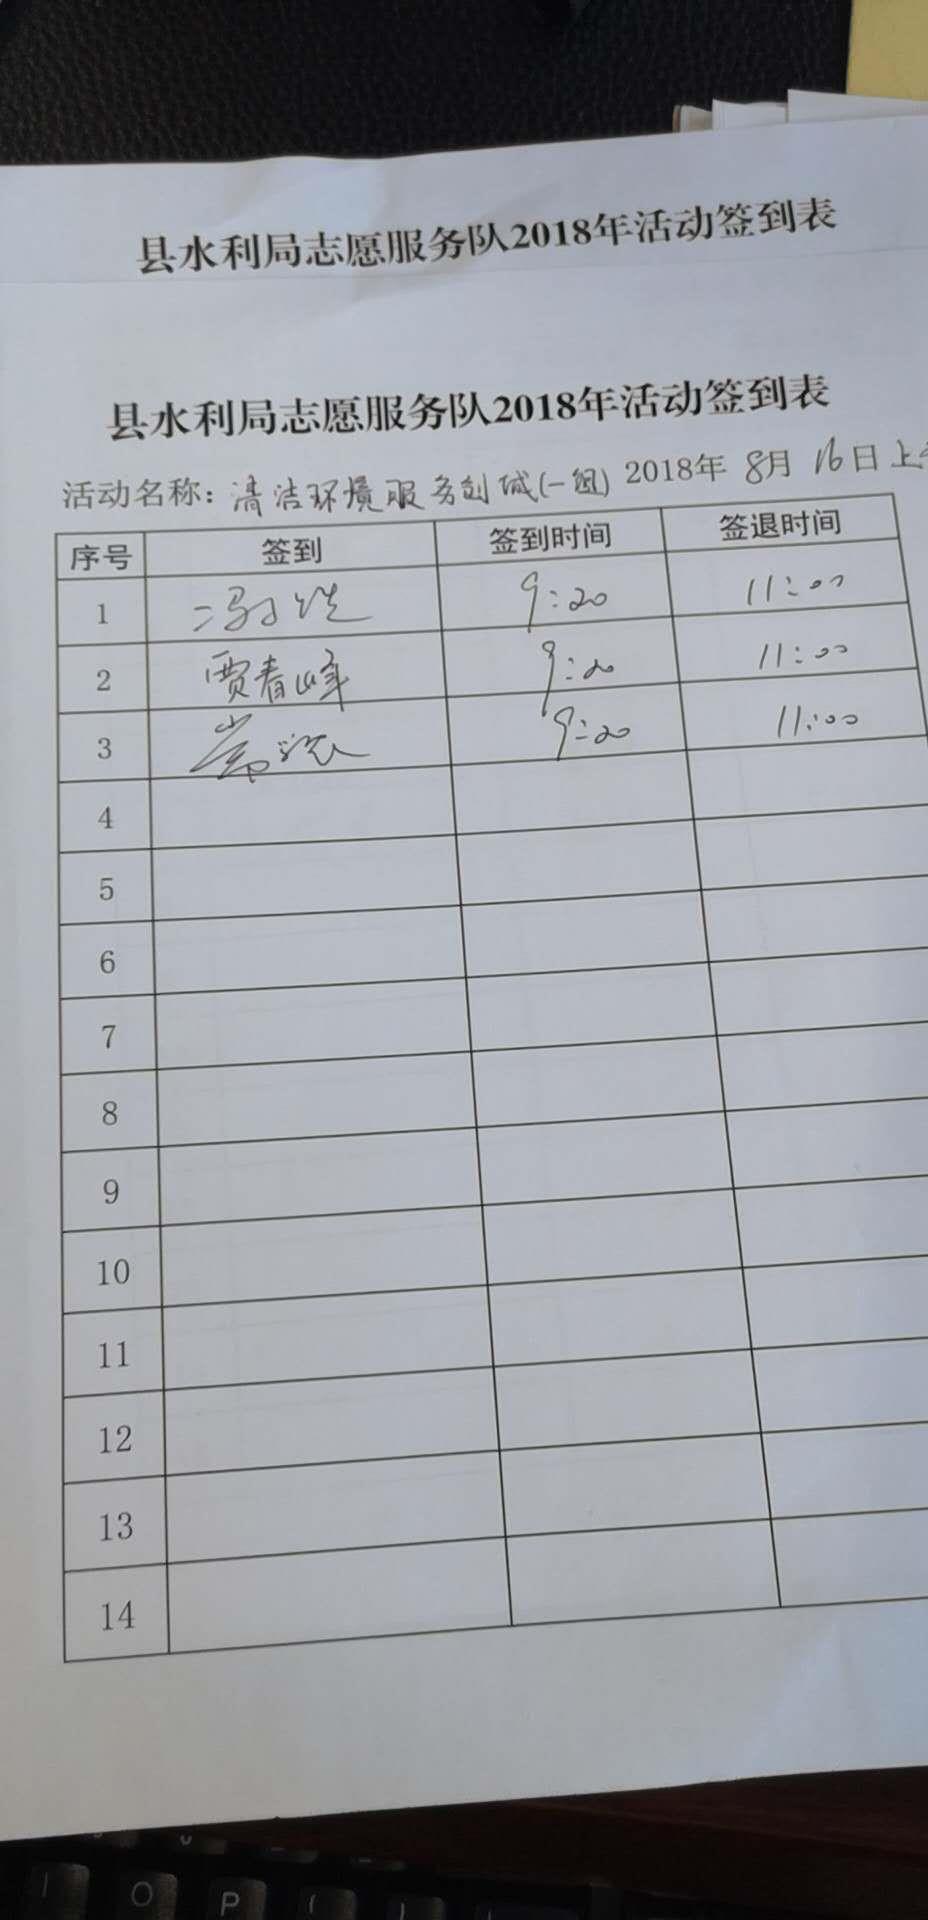 县水利局志愿服务队2018年活动签到表
县水利局志愿服务队2018年活动签到表
活动名称：清洁环境服务创城(一组) 2018年 8月 16日 上
序号 签到 签到时间 签退时间
1 9:20 11:00
2 贾春峰 9:20 11:00
3 9:20 11:00
4
5
6
7
8
9
10
11
12
13
14
O P